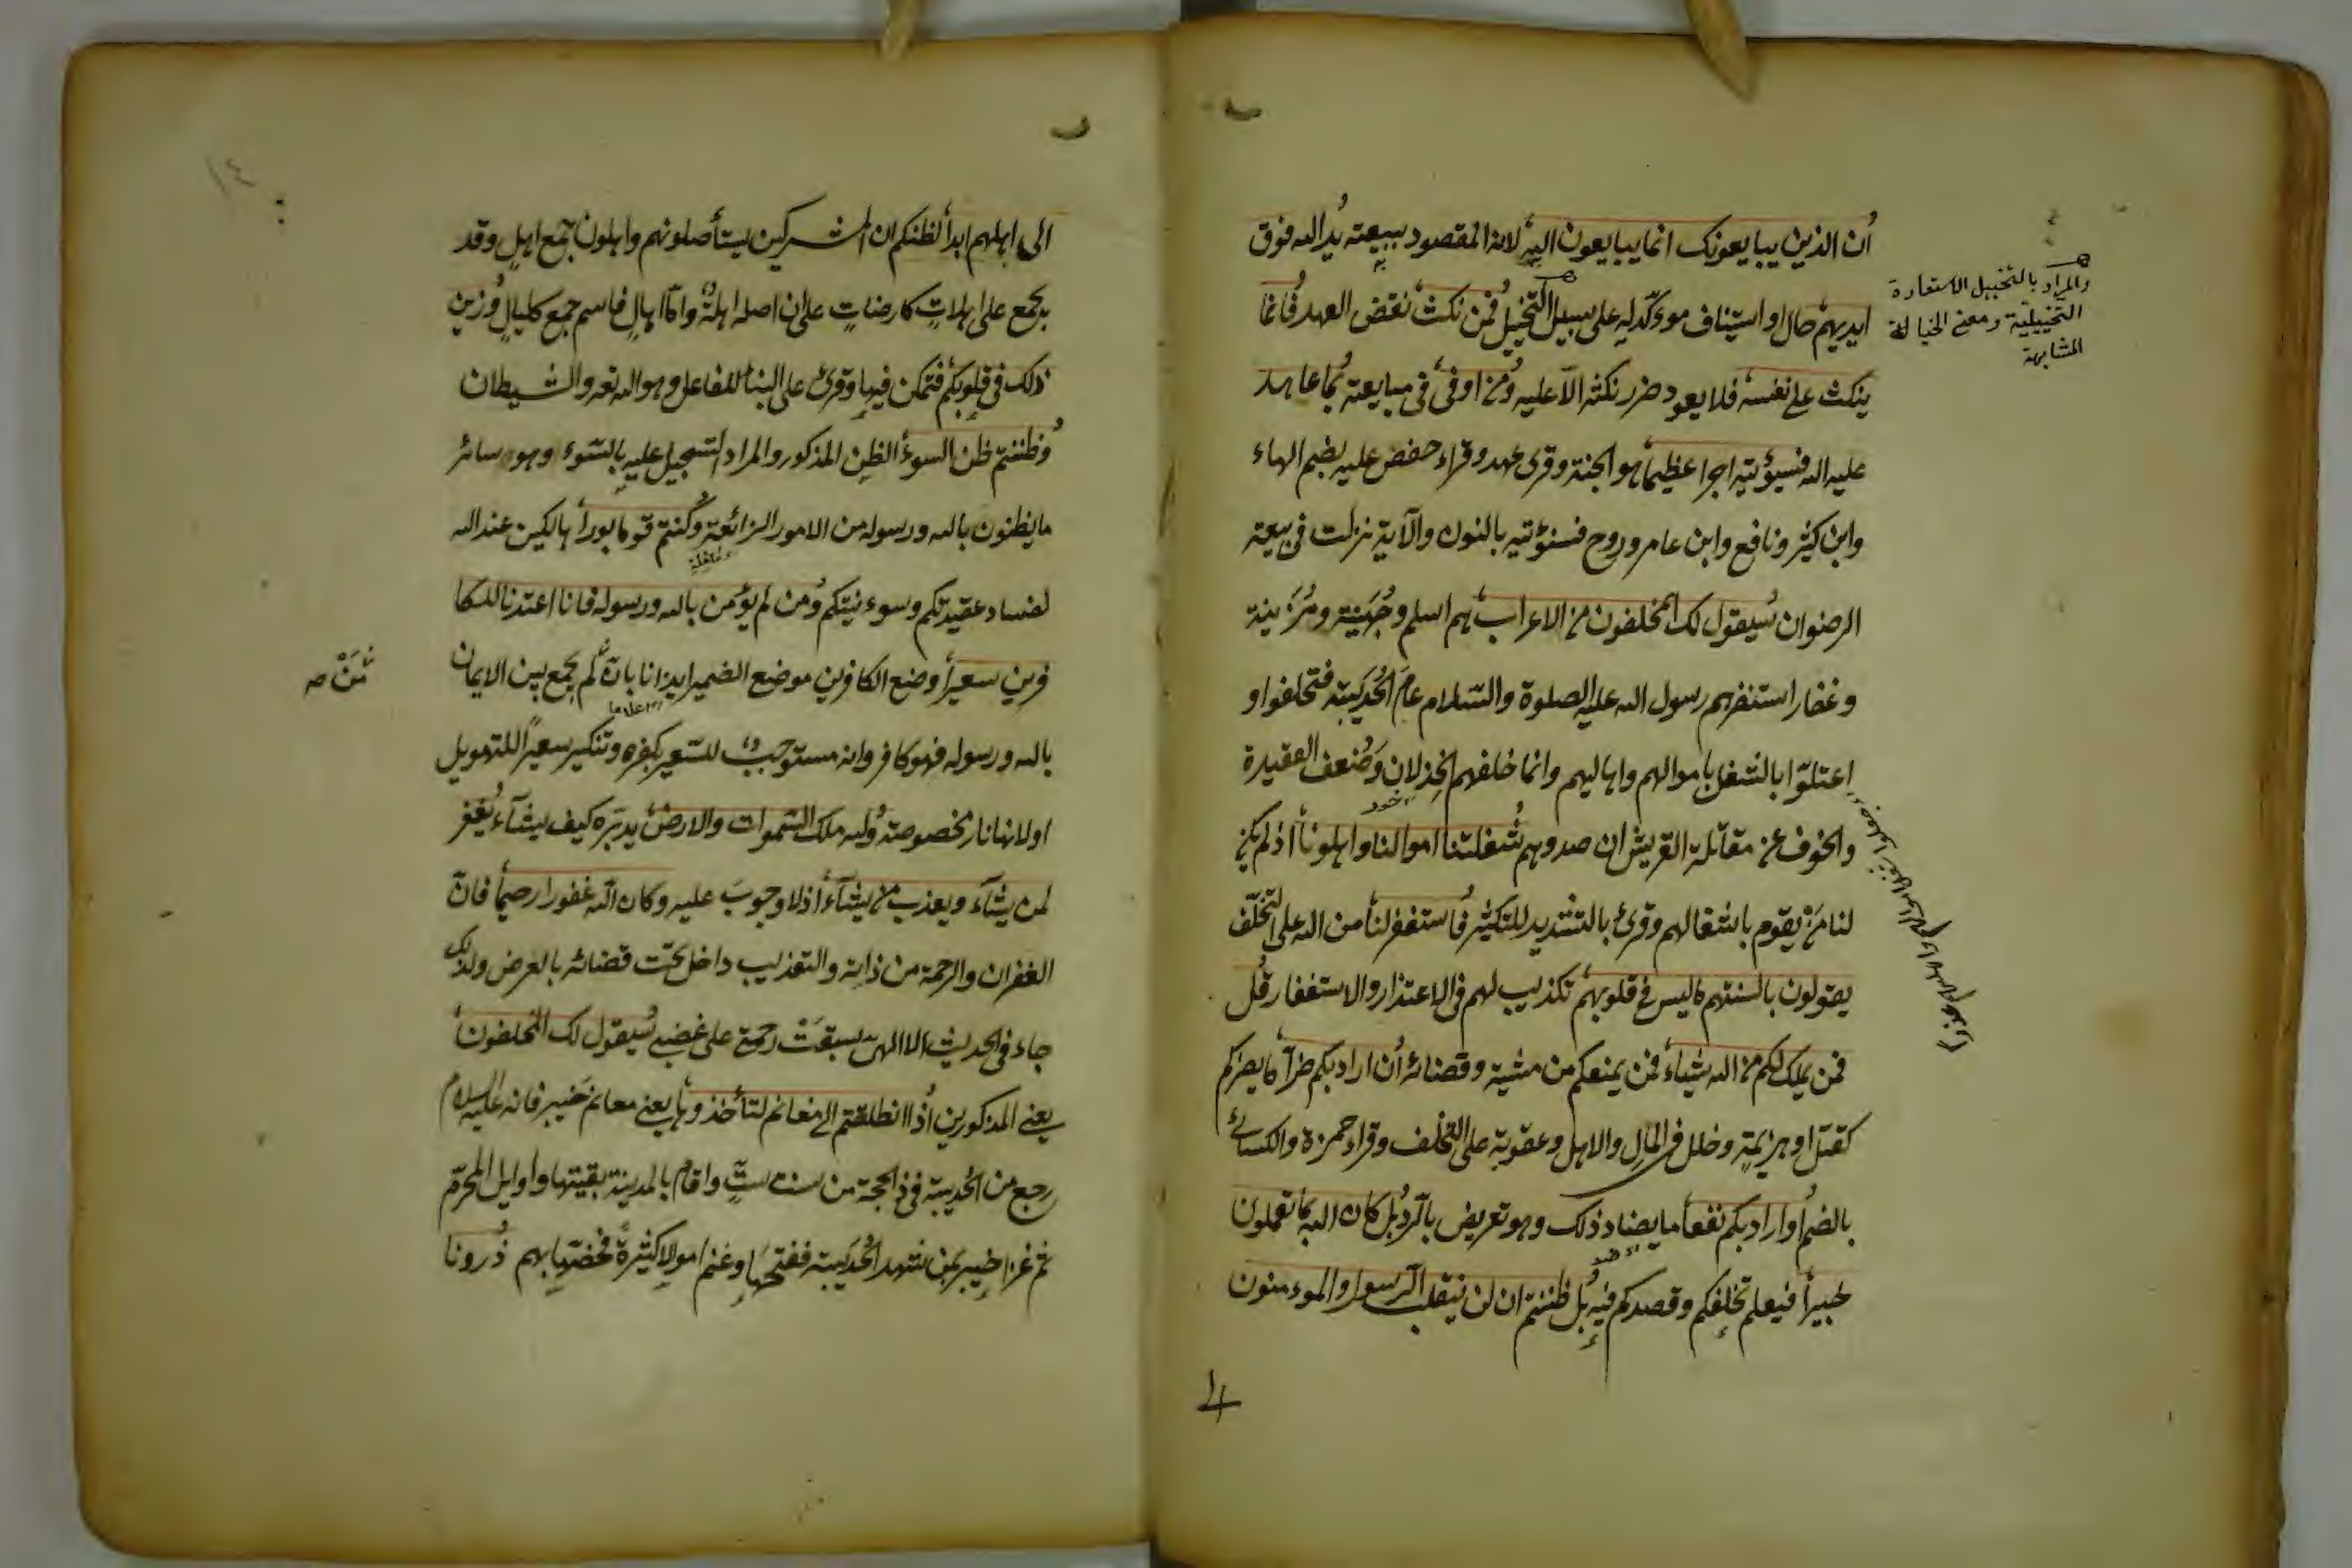 ان الذين يبايعونك انما يبايعون الله لانه المقصود ببيعته يد الله فوق
ايديهم حال او استيناف موءكّد له على سبيل التخييل فمن نكث نقض العهد فانما
ينكث على نفسه فلا يعود ضرر نكثه الّا عليه ومن اوفى في مبايعته بما عاهد
عليه الله فسيؤتيه اجرا عظيما هو الجنة وقرئ عهد وقراء حفص عليه بضم الهاء
وابن كثير ونافع وابن عامر وروح فسنؤتيه بالنون والآية نزلت في بيعة
الرضوان سيقول لك المخلفون من الاعراب هم اسلم وجُهَينة ومُزَينة
وغفار استنفرهم رسول الله عليه الصلوة والسّلام عامَ الحُدَيبية فتخلفوا و
اعتلّوا بالشغل باموالهم واهاليهم وانما خلفهم الخِذلان وَضُعف العقيدة
والخوف عن مقاتلة القريش ان صدوهم شغلتنا اموالنا واهلونا اذ لم يكن
لنا مَنْ يقوم باشغالهم وقرئ بالتشديد للتكثير فاستغفر لنا من الله على التخلّف
يقولون بالسنتهم ما ليس في قلوبهم تكذيب لهم في الاعتذار والاستغفار قل
فمن يملك لكم من الله شيئاء فمن يمنعكم من مشية وقضائه ان اراد بكم ضرآ ما يضركم
كقتل او هزيمة وخلل في المال والاهل وعقوبة على التخلف وقراء حمزة والكسائى
بالضم او اراد بكم نفعا ما يضاد ذلك وهو تعريض بالردّ بل كان الله بما تعملون
خبيرا فيعلم تخلفكم وقصدكم فيه بل ظننتم ان لن ينقلب الرسول والموءمنون
والمراد بالتخييل الاستعارة
التخييلية ومعنى الخيالة
المشابهة
الى اهليهم ابدا لظنكم ان المشركين يستأصلونهم واهلون جمع اهلٍ وقد
يجمع على اهلاتٍ كارضاتٍ على ان اصله اهلةٌ وامّا اهالٍ فاسم جمع كليالٍ وزين
ذلك في قلوبكم فتمكن فيها وقرئ على البناء للفاعل وهو الله تعه والشيطان
وظننتم ظن السوء الظن المذكور والمراد التسجيل عليه بالسّوء وهو سائر
ما يظنون بالله ورسوله من الامور الزائغة وكنتم قوما بورا هالكين عند الله
لفساد عقيدتكم وسوء نيتكم ومن لم يؤمن بالله ورسوله فانا اعتدنا للكا
فرين سعيرا وضع الكافرين موضع الضمير ايذانا بان لم يجمع بين الايمان
بالله ورسوله فهو كافر وانه مستوجبٌ للسّعير بكفره وتنكير سعيرًا للتهويل
او لانها نار مخصوصة ولله ملك السّموات والارض يدبّره كيف يشآء يغفر
لمن يشآء ويعذب من يشآء اذ لا وجوبَ عليه وكان الله غفورا رحيما فانّ
الغفران والرحمة من ذاته والتعذيب داخل تحت قضائه بالعرض ولذلك
جاء في الحديث الالهىّ سبقَتْ رحمتي على غضبي سيقول لك المخلفون
يعنى المذكورين اذا انطلقتم الى مغانم لتأخذوها يعنى مغانم خيبر فانه عليه السلام
رجع من الحديبية في ذي الحجة من سنة ستٍّ واقام بالمدينة بقيتها واوايل المحرّم
ثم غزا خيبر بمن شهد الحُدَيبية ففتحها وغنم اموالا كثيرةً فخصّها بهم ذرونا
مَنْ صه
١٤